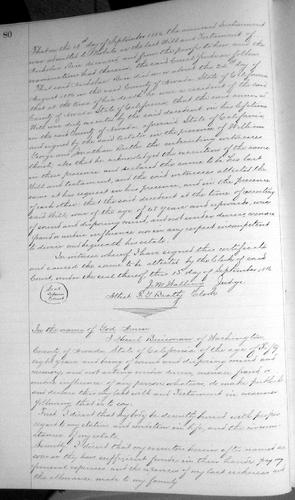 80
That on the 15th day of September 1886 the annexed Instrument
was admitted to Probate as the last Will and Testament of
Nicholas deceased and from the proofs taken and the
examination had therein the said Court finds as follows
That said Nicholas died on or about the day of
August 1886 in the County of State of California
that at the time of his death he was a resident of the said
County of State of California that the said annexed
Will was by the said decedent in his lifetime
in the said County of State of California
and signed by the said Testator in the presence of William
George and Jonathan the subscribing witnesses
thereto also that he acknowledged the execution of the same
in their presence and declared the same to be his last
Will and testament, and the said witnesses attested the
same at his request in his presence, and in the presence
of each other that the said decedent at the time of executing
said Will, was of the age of years and upwards, was
of sound and disposing mind, and not under duress menace
fraud or undue influence nor in any respect incompetent
to devise and bequeath his estate.
In witness whereof I have signed this certificate
and caused the same to be attested by the Clerk of said
Court, under the seal thereof this 15 day of September 1886
Judge
Attest Clerk
Seal
Court
In the name of God Amen
I of Washington
County of State of California of the age of
years and being of sound and disposing mind and
memory, and not acting under duress, menace, fraud or
undue influence of any person whatever, do make publish
and declare this my last Will and Testament in manner
following, that is to say.
First I direct that my body be decently buried with proper
regard to my station and condition in life, and the circum-
stances of my estate
Secondly I direct that my executors herein after named as
soon as they have sufficient funds in their hands pay my
funeral expenses and the expenses of my last sickness and
the allowance made to my family